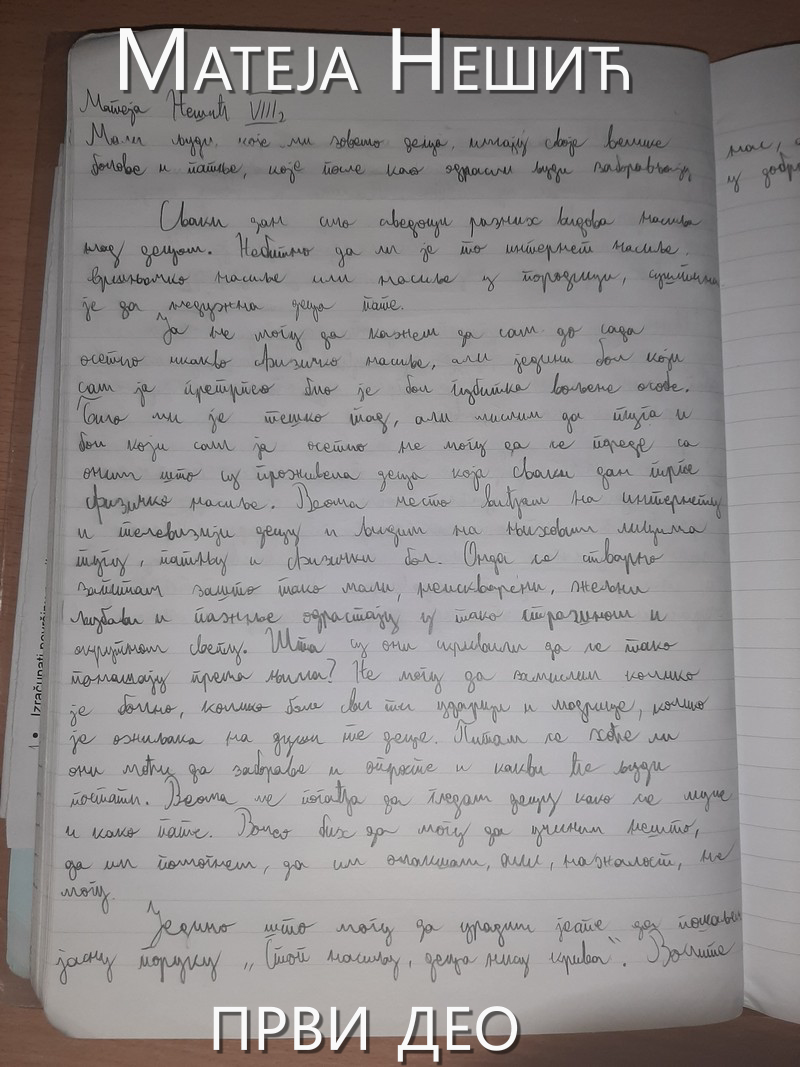 Матеја Нешић
Матеја Нешић VIII₂
Мали људи, које ми зовемо деца, имају своје велике
болове и патње, које после као одрасли људи заборављају
Сваки дан смо сведоци разних видова насиља
над децом. Небитно да ли је то интернет насиље,
вршњачко насиље или насиље у породици, суштина
је да недужна деца пате.
Ја не могу да кажем да сам до сада
осетио никакво физичко насиље, али једини бол који
сам ја претрпео био је бол губитка вољене особе.
Било ми је тешко тад, али мислим да туга и
бол који сам ја осетио не могу да се пореде са
оним што су проживела деца која сваки дан трпе
физичко насиље. Веома често виђам на интернету
и телевизији децу и видим на њиховим лицима
тугу, патњу и физички бол. Онда се стварно
запитам зашто тако мали, неискварени, жељни
љубави и пажње одрастају у тако страшном и
окрутном свету. Шта су они скривили да се тако
понашају према њима? Не могу да замислим колико
је болно, колико боле сви ти ударци и модрице, колико
је ожиљака на души те деце. Питам се хоће ли
они моћи да забораве и опросте и какви ће људи
постати. Веома ме погађа да гледам децу како се муче
и како пате. Волео бих да могу да учиним нешто,
да им помогнем, да им олакшам, али, нажалост, не
могу.
Једино што могу да урадим јесте да пошаљем
јасну поруку „Стоп насиљу, деца нису крива“. Волите
нас,
у
ПРВИ ДЕО